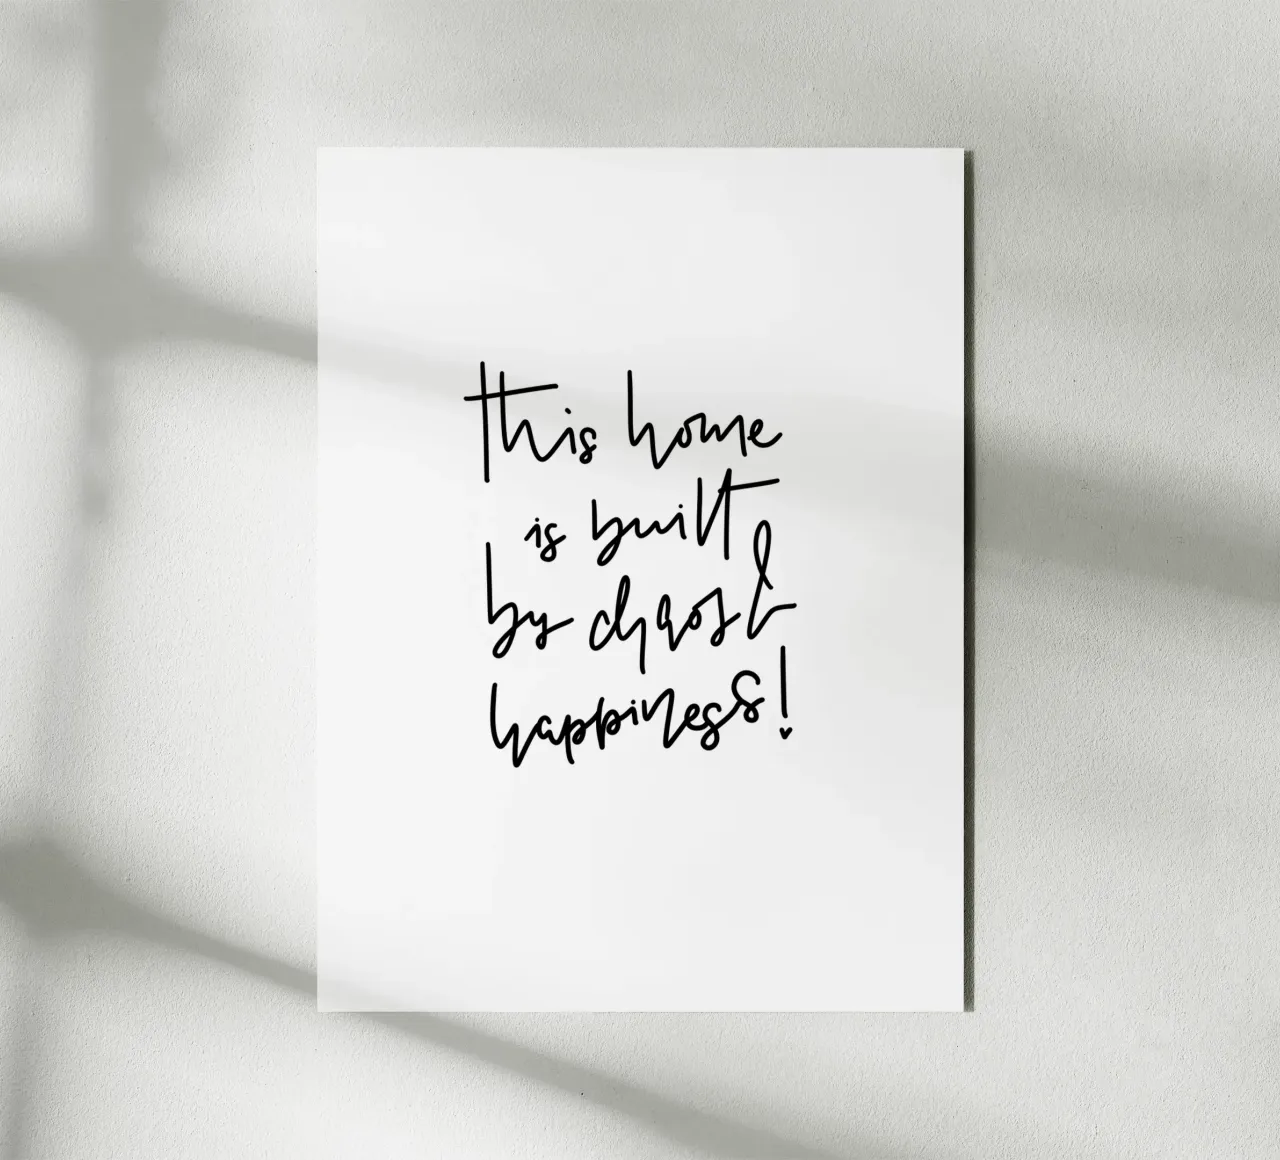 this home
is built
by chaos &
happiness!